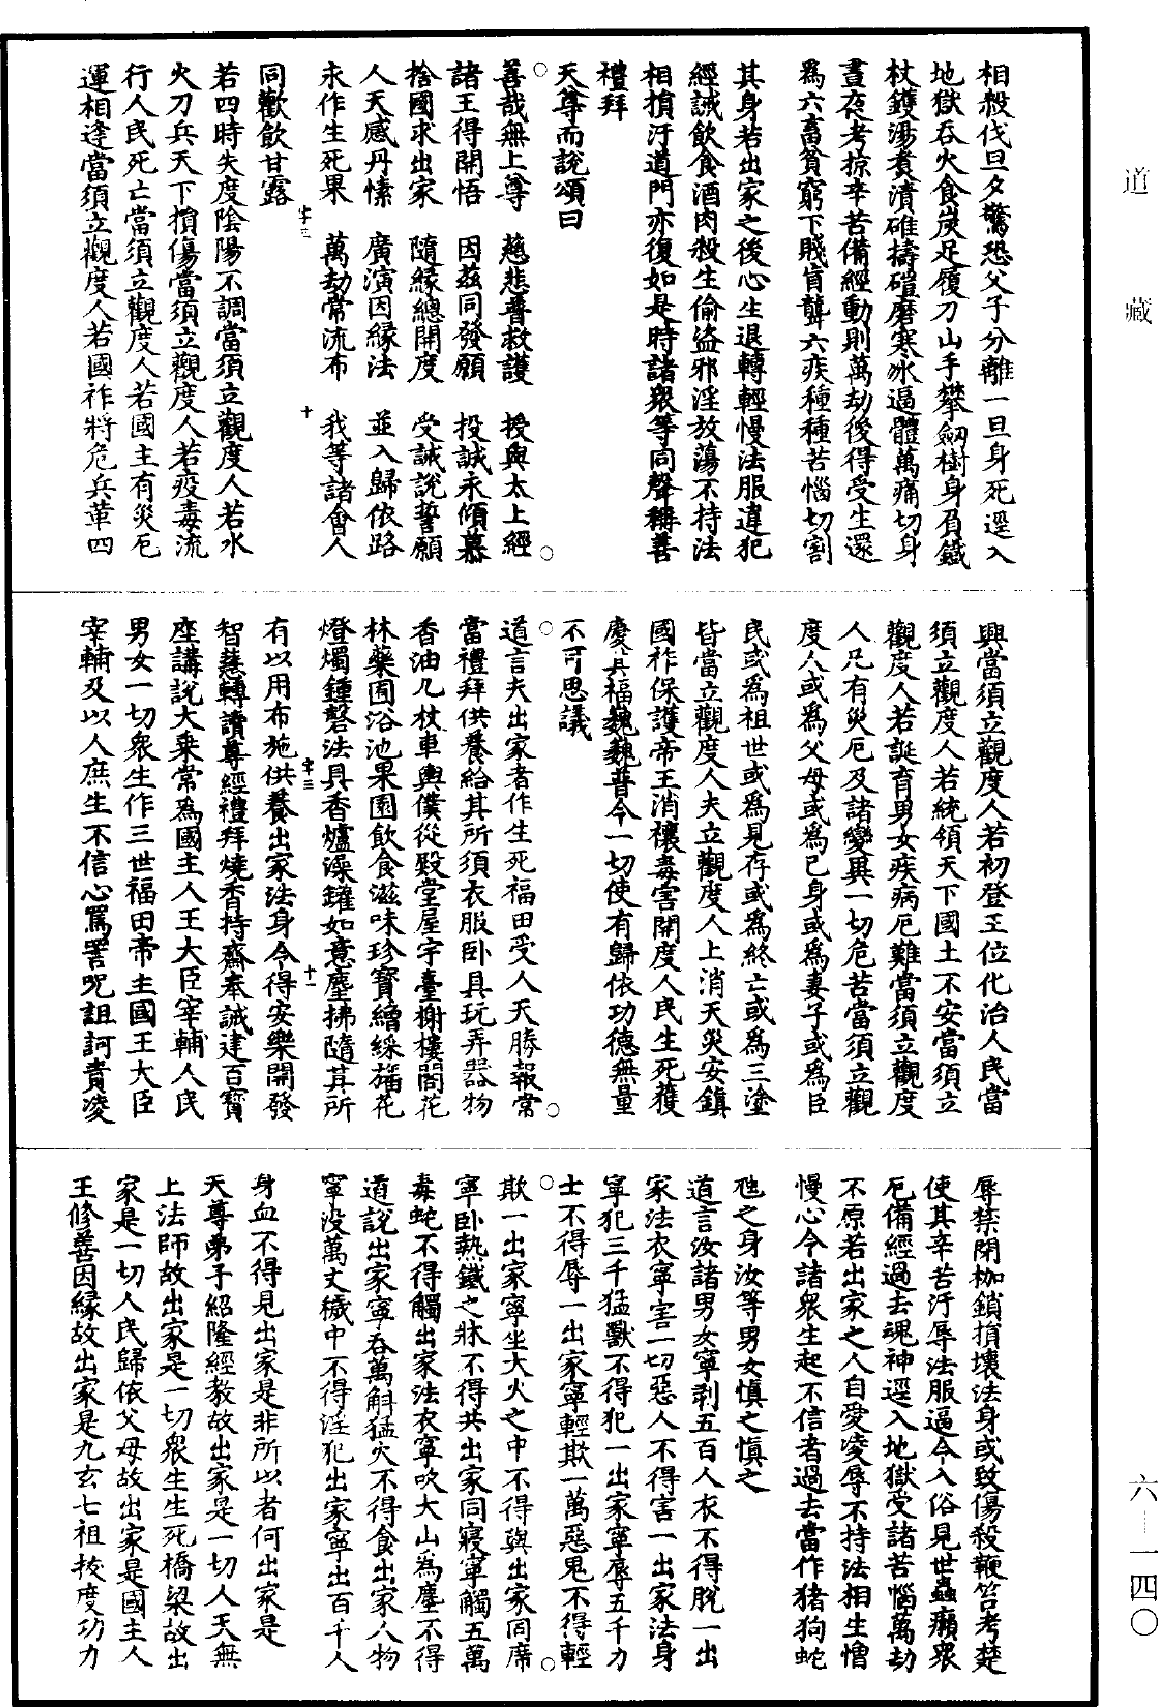 相殺伐旦夕驚恐父子分離一旦身死逕入
地獄吞火食炭足履刀山手攀劒樹身負鐵
杖鑊湯煮漬碓擣磑磨寒冰逼體萬痛切身
晝夜考掠辛苦備經動則萬劫後得受生還
為六畜貧窮下賤盲聾六疾種種苦惱切割
其身若出家之後心生退轉輕慢法服違犯
經誡飲食酒肉殺生偷盜邪淫放蕩不持法
相損汙道門亦復如是時諸眾等同聲稱善
禮拜
天尊而說頌曰
善哉無上尊　慈悲普救護　授與太上經
諸王得開悟　因茲同發願　投誠永傾慕
捨國求出家　隨緣總開度　受誡說誓願
人天感丹愫　廣演因緣法　並入歸依路
永作生死果　萬劫常流布　我等諸會人
同歡飲甘露
若四時失度陰陽不調當須立觀度人若水
火刀兵天下損傷當須立觀度人若疫毒流
行人民死亡當須立觀度人若國主有災厄
運相逢當須立觀度人若國祚將危兵革四
興當須立觀度人若初登王位化治人民當
須立觀度人若統領天下國土不安當須立
觀度人若誕育男女疾病厄難當須立觀度
人凡有災厄及諸變異一切危苦當須立觀
度人或為父母或為己身或為妻子或為臣
民或為祖世或為見存或為終亡或為三塗
皆當立觀度人夫立觀度人上消天災安鎮
國祚保護帝王消禳毒害開度人民生死獲
慶其福巍巍普令一切使有歸依功德無量
不可思議
道言夫出家者作生死福田受人天勝報常
當禮拜供養給其所須衣服臥具玩弄器物
香油几杖車輿僕從殿堂屋宇臺榭樓閣花
林藥圃浴池果園飲食滋味珍寶繒綵旛花
燈燭鍾磬法具香爐澡鑵如意麈拂隨其所
有以用布施供養出家法身令得安樂開發
智慧轉讀尊經禮拜燒香持齋奉誡建百寶
座講說大乘常為國主人王大臣宰輔人民
男女一切眾生作三世福田帝主國王大臣
宰輔及以人庶生不信心罵詈咒詛訶責凌
辱禁閉枷鎖損壞法身或致傷殺鞭笞考楚
使其辛苦汙辱法服逼令入俗見世蟲癩眾
厄備經過去魂神逕入地獄受諸苦惱萬劫
不原若出家之人自愛凌辱不持法相生憎
慢心令諸眾生起不信者過去當作猪狗蛇
虺之身汝等男女慎之慎之
道言汝諸男女寧剥五百人衣不得脫一出
家法衣寧害一切惡人不得害一出家法身
寧犯三千猛獸不得犯一出家寧辱五千力
士不得辱一出家寧輕欺一萬惡鬼不得輕
欺一出家寧坐大火之中不得與出家同席
寧臥熱鐵之牀不得共出家同寢寧觸五萬
毒蛇不得觸出家法衣寧吹大山為塵不得
道說出家寧吞萬斛猛火不得食出家人物
寧沒萬丈穢中不得淫犯出家寧出百千人
身血不得見出家是非所以者何出家是
天尊弟子紹隆經教故出家是一切人天無
上法師故出家是一切眾生生死橋梁故出
家是一切人民歸依父母故出家是國主人
王修善因緣故出家是九玄七祖拔度功力
道藏
六—一四〇